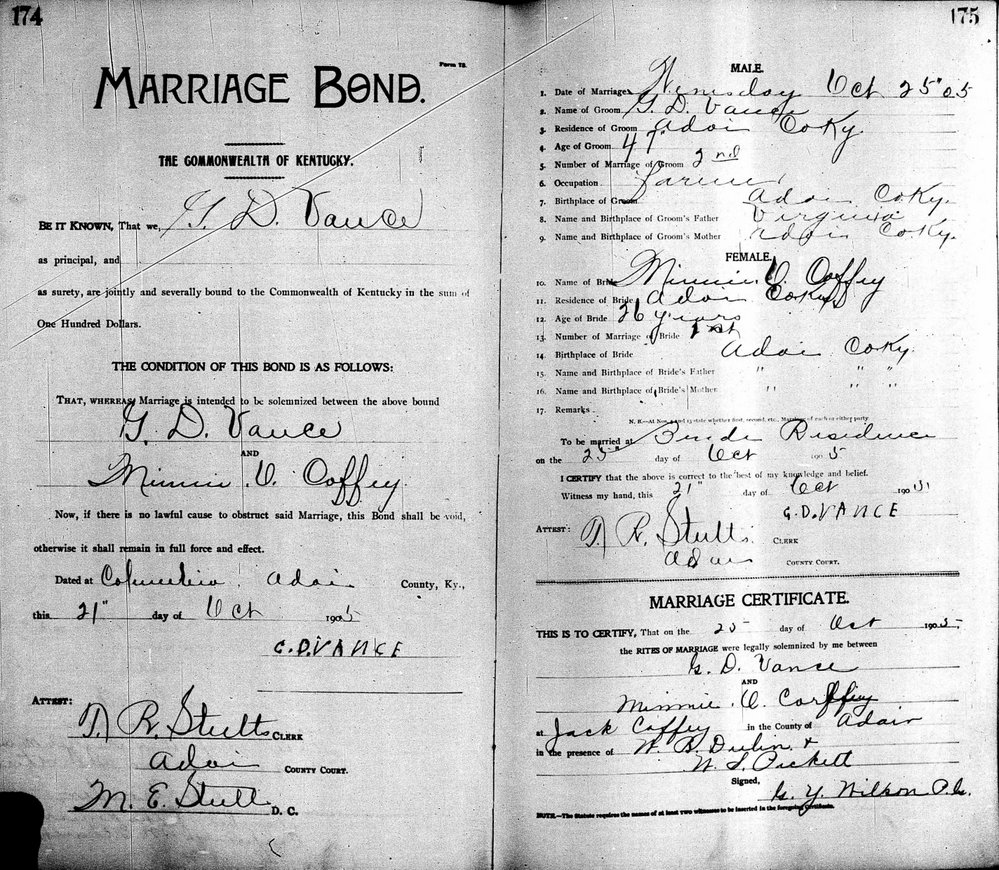 174
Form 73.
MARRIAGE BOND.
THE COMMONWEALTH OF KENTUCKY.
BE IT KNOWN, That we, G. D. Vance
as principal, and
as surety, are jointly and severally bound to the Commonwealth of Kentucky in the sum of
One Hundred Dollars.
THE CONDITION OF THIS BOND IS AS FOLLOWS:
THAT, WHEREAS Marriage is intended to be solemnized between the above bound
G. D. Vance
AND
Minnie V. Coffey
Now, if there is no lawful cause to obstruct said Marriage, this Bond shall be void,
otherwise it shall remain in full force and effect.
Dated at Columbia Adair County, Ky.,
this 21" day of Oct 1905
G.D.VANCE
ATTEST:
T R. Stults CLERK
Adair COUNTY COURT.
M. E. Stult D. C.
175
MALE.
1. Date of Marriage Wensday Oct 25" 05
2. Name of Groom G. D. Vance
3. Residence of Groom Adair Co Ky.
4. Age of Groom 47
5. Number of Marriage of Groom 2nd
6. Occupation Farmer
7. Birthplace of Groom Adair Co Ky.
8. Name and Birthplace of Groom's Father Virginia
9. Name and Birthplace of Groom's Mother Adair Co Ky.
FEMALE.
10. Name of Bride Minnie V. Coffey
11. Residence of Bride Adair Co Ky
12. Age of Bride 26 years
13. Number of Marriage of Bride 1st
14. Birthplace of Bride Adair Co Ky.
15. Name and Birthplace of Bride's Father " " "
16. Name and Birthplace of Bride's Mother " " "
17. Remarks.
N. B.—At Nos. 5 and 13 state whether first, second, etc., Marriage of each or either party
To be married at Brides Residence
on the 25" day of Oct 1905
I CERTIFY that the above is correct to the best of my knowledge and belief.
Witness my hand, this 21" day of Oct 1905
G.D.VANCE
ATTEST:
T R. Stults CLERK
Adair COUNTY COURT.
MARRIAGE CERTIFICATE.
THIS IS TO CERTIFY, That on the 25 day of Oct 1905
the RITES OF MARRIAGE were legally solemnized by me between
G. D. Vance
AND
Minnie V. Corffey
at Jack Coffey in the County of Adair
in the presence of W. R. Dulin &
W. S. Pickett
Signed, G. Y. Wilson P.G.
NOTE.—The Statute requires the names of at least two witnesses to be inserted in the foregoing Certificate.